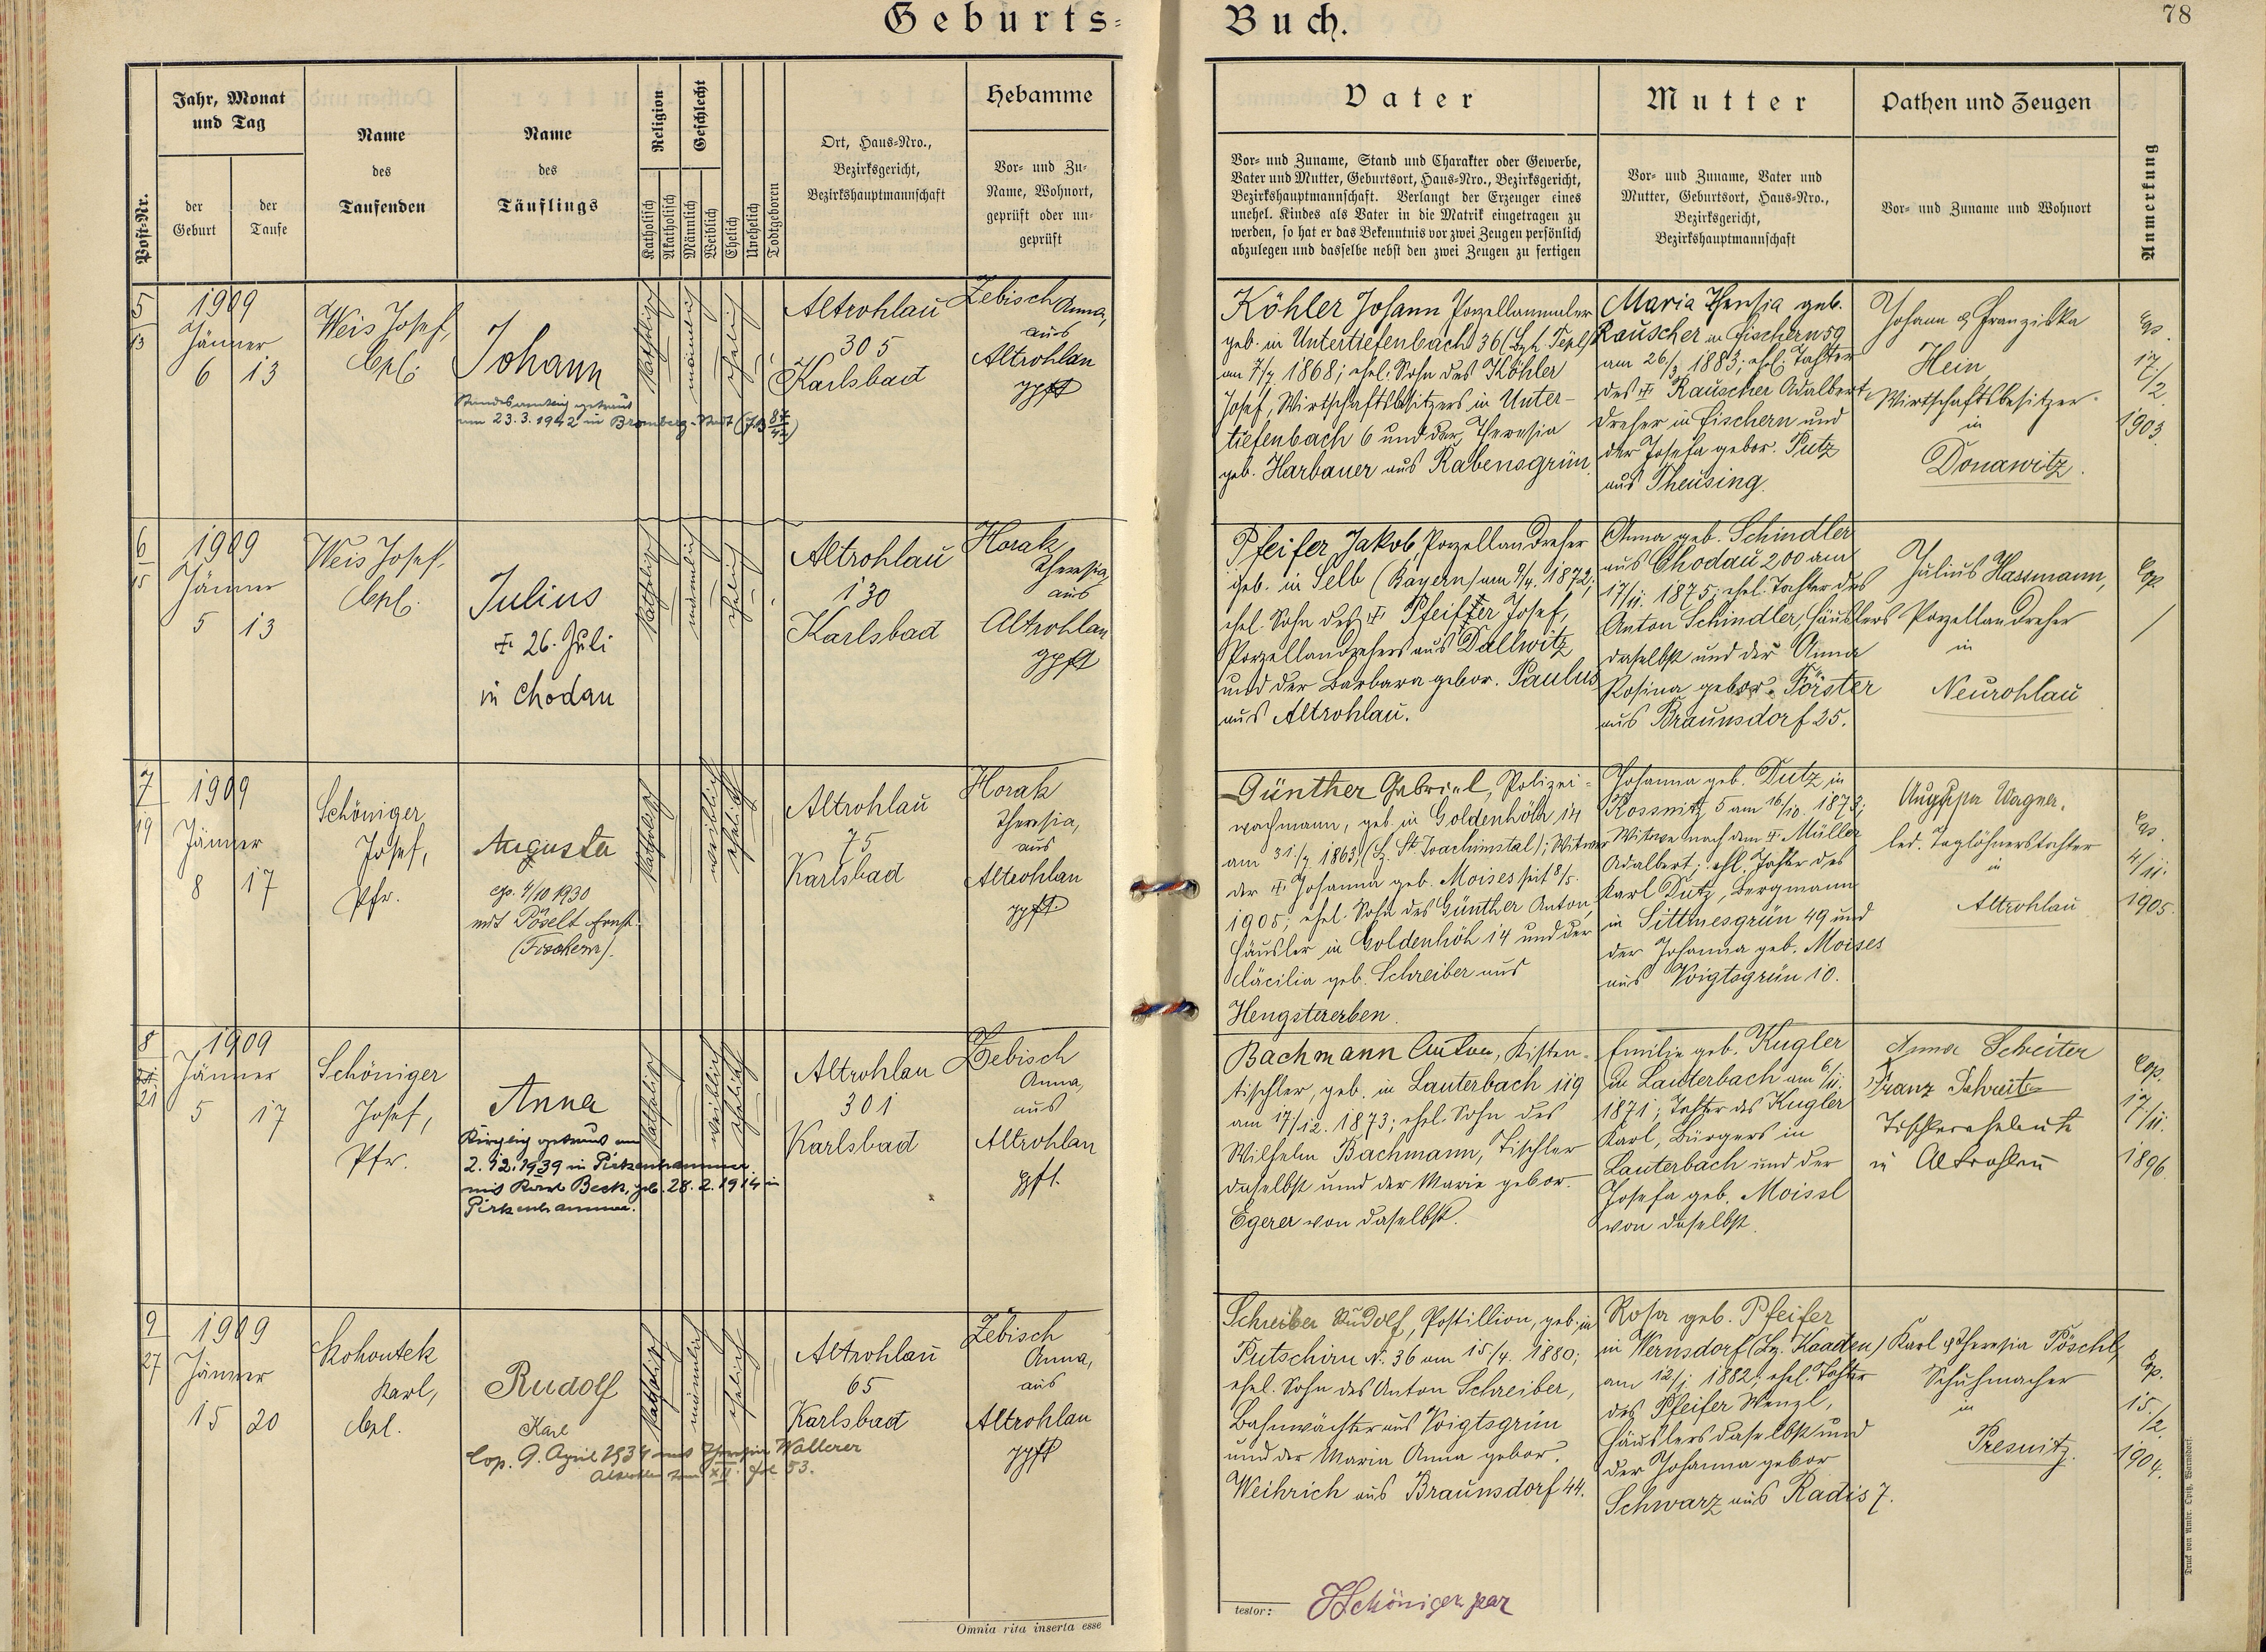 Geburts-Buch.
78
Post-Nr.
Jahr, Monat
und Tag
der
Geburt
der
Taufe
Name
des
Taufenden
Name
des
Täuflings
Religion
Katholisch
Akatholisch
Geschlecht
Männlich
Weiblich
Ehelich
Unehelich
Todtgeboren
Ort, Haus-Nro.,
Bezirksgericht,
Bezirkshauptmannschaft
Hebamme
Vor- und Zu-
Name, Wohnort,
geprüft oder un-
geprüft
Vater
Vor- und Zuname, Stand und Charakter oder Gewerbe,
Vater und Mutter, Geburtsort, Haus-Nro., Bezirksgericht,
Bezirkshauptmannschaft. Verlangt der Erzeuger eines
unehel. Kindes als Vater in die Matrik eingetragen zu
werden, so hat er das Bekenntnis vor zwei Zeugen persönlich
abzulegen und dasselbe nebst den zwei Zeugen zu fertigen
Mutter
Vor- und Zuname, Vater und
Mutter, Geburtsort, Haus-Nro.,
Bezirksgericht,
Bezirkshauptmannschaft
Pathen und Zeugen
Vor- und Zuname und Wohnort
Anmerkung
5
13
1909
Jänner
6 13
Weis Josef,
Cpl.
Johann
Standesamtlich getraut
am 23.3.1942 in Bromberg-Stadt
katholisch
männlich
ehelich
Altrohlau
305
Karlsbad
Zebisch Anna,
aus
Altrohlau
gpft
Köhler Johann Porzellanmaler
geb. in Untertiefenbach 36 (Bzh. Tepl)
am 7/7 1868; ehel. Sohn des Köhler
Josef, Wirtschaftsbesitzers in Unter-
tiefenbach 6 und der Theresia
geb. Harbauer aus Rabensgrün.
Maria Theresia geb.
Rauscher in Fischern 59
am 26/3 1883; ehl. Tochter
des ✝ Rauscher Adalbert,
Dreher in Fischern und
der Josefa gebor. Putz
aus Theusing.
Johann & Franziska
Hein,
Wirtschaftsbesitzer
in
Donawitz.
Cop.
17/2
1903.
6
15
1909
Jänner
5 13
Weis Josef,
Cpl.
Julius
✝ 26. Juli
in Chodau
katholisch
männlich
ehelich
Altrohlau
130
Karlsbad
Horak
Theresia,
aus
Altrohlau
gpft
Pfeifer Jakob, Porzellandreher
geb. in Selb (Bayern) am 9/4. 1872;
ehel. Sohn des ✝ Pfeiffer Josef,
Porzellandrehers aus Dallwitz
und der Barbara gebor. Paulus
aus Altrohlau.
Anna geb. Schindler
aus Chodau 200 am
17/11. 1875; ehel. Tochter des
Anton Schindler, Häuslers
daselbst und der Anna
Rosina gebor. Förster
aus Braunsdorf 25.
Julius Hassmann,
Porzellandreher
in
Neurohlau
Cop.
/
7
19
1909
Jänner
8 17
Schöniger
Josef,
Pfr.
Augusta
cop. 4/10 1930
mit Pöselt Ernst
(Fischern).
katholisch
weiblich
ehelich
Altrohlau
75
Karlsbad
Horak
Theresia,
aus
Altrohlau
gpft
Günther Gabriel, Polizei-
wachmann, geb. in Goldenhöh 14
am 31./7 1863 (Bz. St. Joachimstal); Witwer
der ✝ Johanna geb. Moises seit 8/5.
1905; ehel. Sohn des Günther Anton,
Häusler in Goldenhöh 14 und der
Cäcilia geb. Schreiber aus
Hengstererben.
Johanna geb. Dutz, in
Rossnitz 5 am 16/10. 1873;
Witwe nach dem ✝ Müller
Adalbert; ehl. Tochter des
Karl Dutz, Bergmann
in Sittmesgrün 49 und
der Johanna geb. Moises
aus Voigtsgrün 10.
Augusta Wagner,
led. Taglöhnerstochter
in
Altrohlau
Cop.
4/11.
1905.
8
21
1909
Jänner
5 17
Schöniger
Josef,
Pfr.
Anna
Kirchlich getraut am
2.12.1939 in Pirkenhammer
mit Karl Beck, geb. 28.2.1914 in
Pirkenhammer.
katholisch
weiblich
ehelich
Altrohlau
301
Karlsbad
Zebisch
Anna,
aus
Altrohlau
gpft.
Bachmann Anton, Kisten-
tischler, geb. in Lauterbach 119
am 17/12. 1873; ehel. Sohn des
Wilhelm Bachmann, Tischler
daselbst und der Marie gebor.
Egerer von daselbst.
Emilie geb. Kugler
in Lauterbach am 6/11.
1871; Tochter des Kugler
Karl, Bürgers in
Lauterbach und der
Josefa geb. Moissl
von daselbst.
Anna Schreiter
Franz Schreiter
Tischlerseheleute
in Altrohlau
Cop.
17/11.
1896.
9
27
1909
Jänner
15 20
Kohoutek
Karl,
Cpl.
Rudolf
Karl
Cop. 9. April 1934 mit Theresia Wallerer
Altrohlau Fol 53.
katholisch
männlich
ehelich
Altrohlau
65
Karlsbad
Zebisch
Anna,
aus
Altrohlau
gpft
Schreiber Rudolf, Postillion, geb. in
Putschirn N. 36 am 15/4. 1880;
ehel. Sohn des Anton Schreiber,
Bahnwächter aus Voigtsgrün
und der Maria Anna gebor.
Weihrich aus Braunsdorf 44.
Rosa geb. Pfeifer
in Wernsdorf (Bz. Kaaden)
am 12/1. 1882; ehel. Tochter
des Pfeifer Wenzl,
Häuslers daselbst und
der Johanna gebor
Schwarz aus Radis 7.
Karl & Theresia Pöschl,
Schuhmacher
in
Presnitz.
Cop.
15./2.
1904.
Omnia rita inserta esse
testor:
JSchöniger par
Druck von Ambr. Opitz, Warnsdorf.